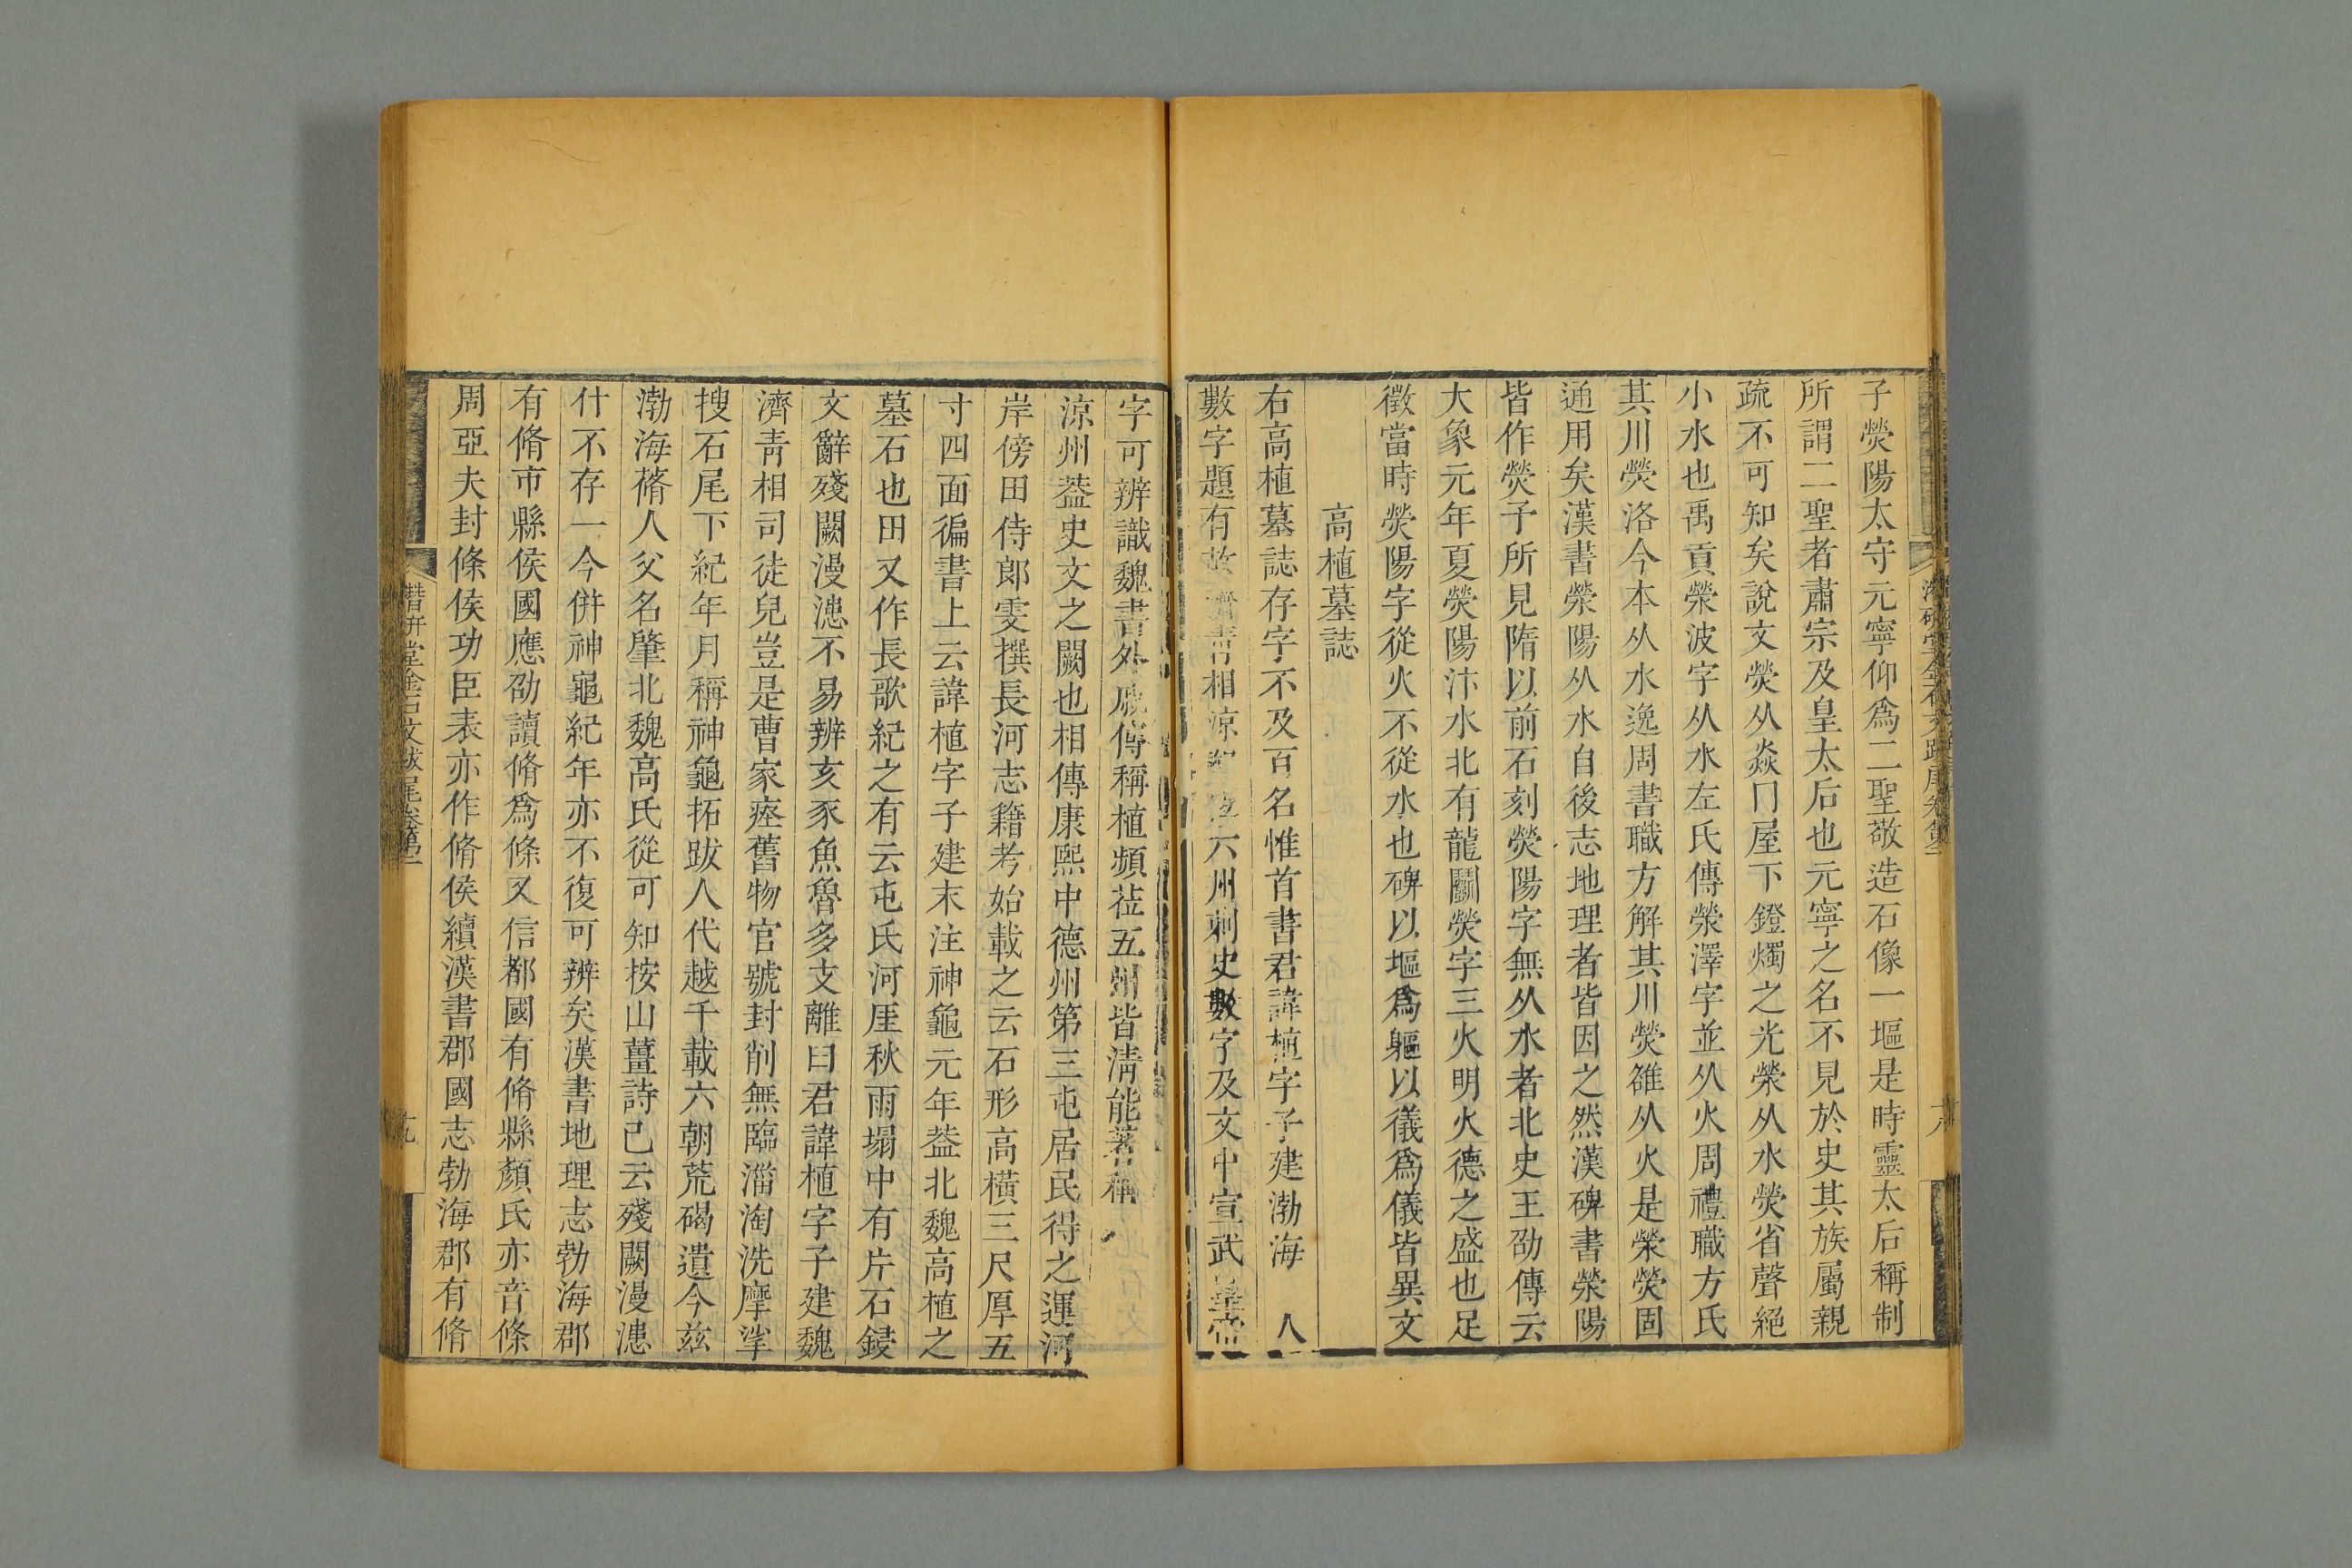 子熒陽太守元寧仰爲二聖敬造石像一塸是時靈太后稱制
所謂二聖者肅宗及皇太后也元寧之名不見於史其族屬親
疏不可知矣說文熒从焱冂屋下鐙燭之光滎从水熒省聲絕
小水也禹貢滎波字从水左氏傳滎澤字並从火周禮職方氏
其川熒洛今本从水逸周書職方解其川熒雒从火是滎熒固
通用矣漢書滎陽从水自後志地理者皆因之然漢碑書滎陽
皆作熒予所見隋以前石刻熒陽字無从水者北史王劭傳云
大象元年夏熒陽汴水北有龍鬭熒字三火明火德之盛也足
徵當時熒陽字從火不從水也碑以塸爲軀以儀爲儀皆異文
高植墓誌
右高植墓誌存字不及百名惟首書君諱植字子建渤海 人
數字題有故濟青相涼 六州刺史數字及文中宣武皇帝
字可辨識魏書外戚傳稱植頻莅五州皆清能著稱
涼州葢史文之闕也相傳康熙中德州第三屯居民得之運河
岸傍田侍郎雯撰長河志籍考始載之云石形高橫三尺厚五
寸四面徧書上云諱植字子建末注神龜元年葢北魏高植之
墓石也田又作長歌紀之有云屯氏河厓秋雨塌中有片石錽
文辭殘闕漫漶不易辨亥豕魚魯多支離曰君諱植字子建魏
濟青相司徒兒豈是曹家瘞舊物官號封削無臨淄淘洗摩挲
搜石尾下紀年月稱神龜拓跋人代越千載六朝荒碣遺今茲
渤海蓨人父名肇北魏高氏從可知按山薑詩已云殘闕漫漶
什不存一今併神龜紀年亦不復可辨矣漢書地理志勃海郡
有脩市縣侯國應劭讀脩爲條又信都國有脩縣顏氏亦音條
周亞夫封條侯功臣表亦作脩侯續漢書郡國志勃海郡有脩
潛研堂金石文跋尾卷第二
十九